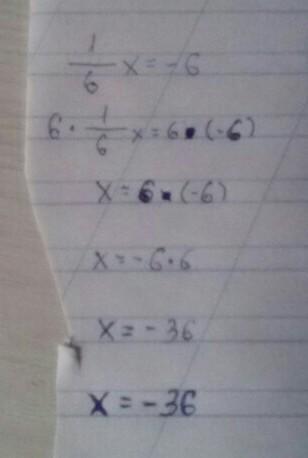 1/6 x = -6
6 · 1/6 x = 6 · (-6)
x = 6 · (-6)
x = -6 · 6
x = -36
x = -36